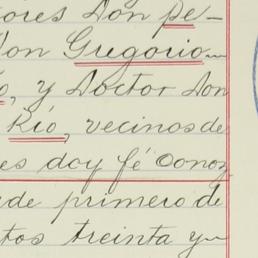 ores Don pe-
don Gregorio
o, y Doctor Don
Rio, vecinos de
es doy fé Conoz
de primero de
tos treinta y